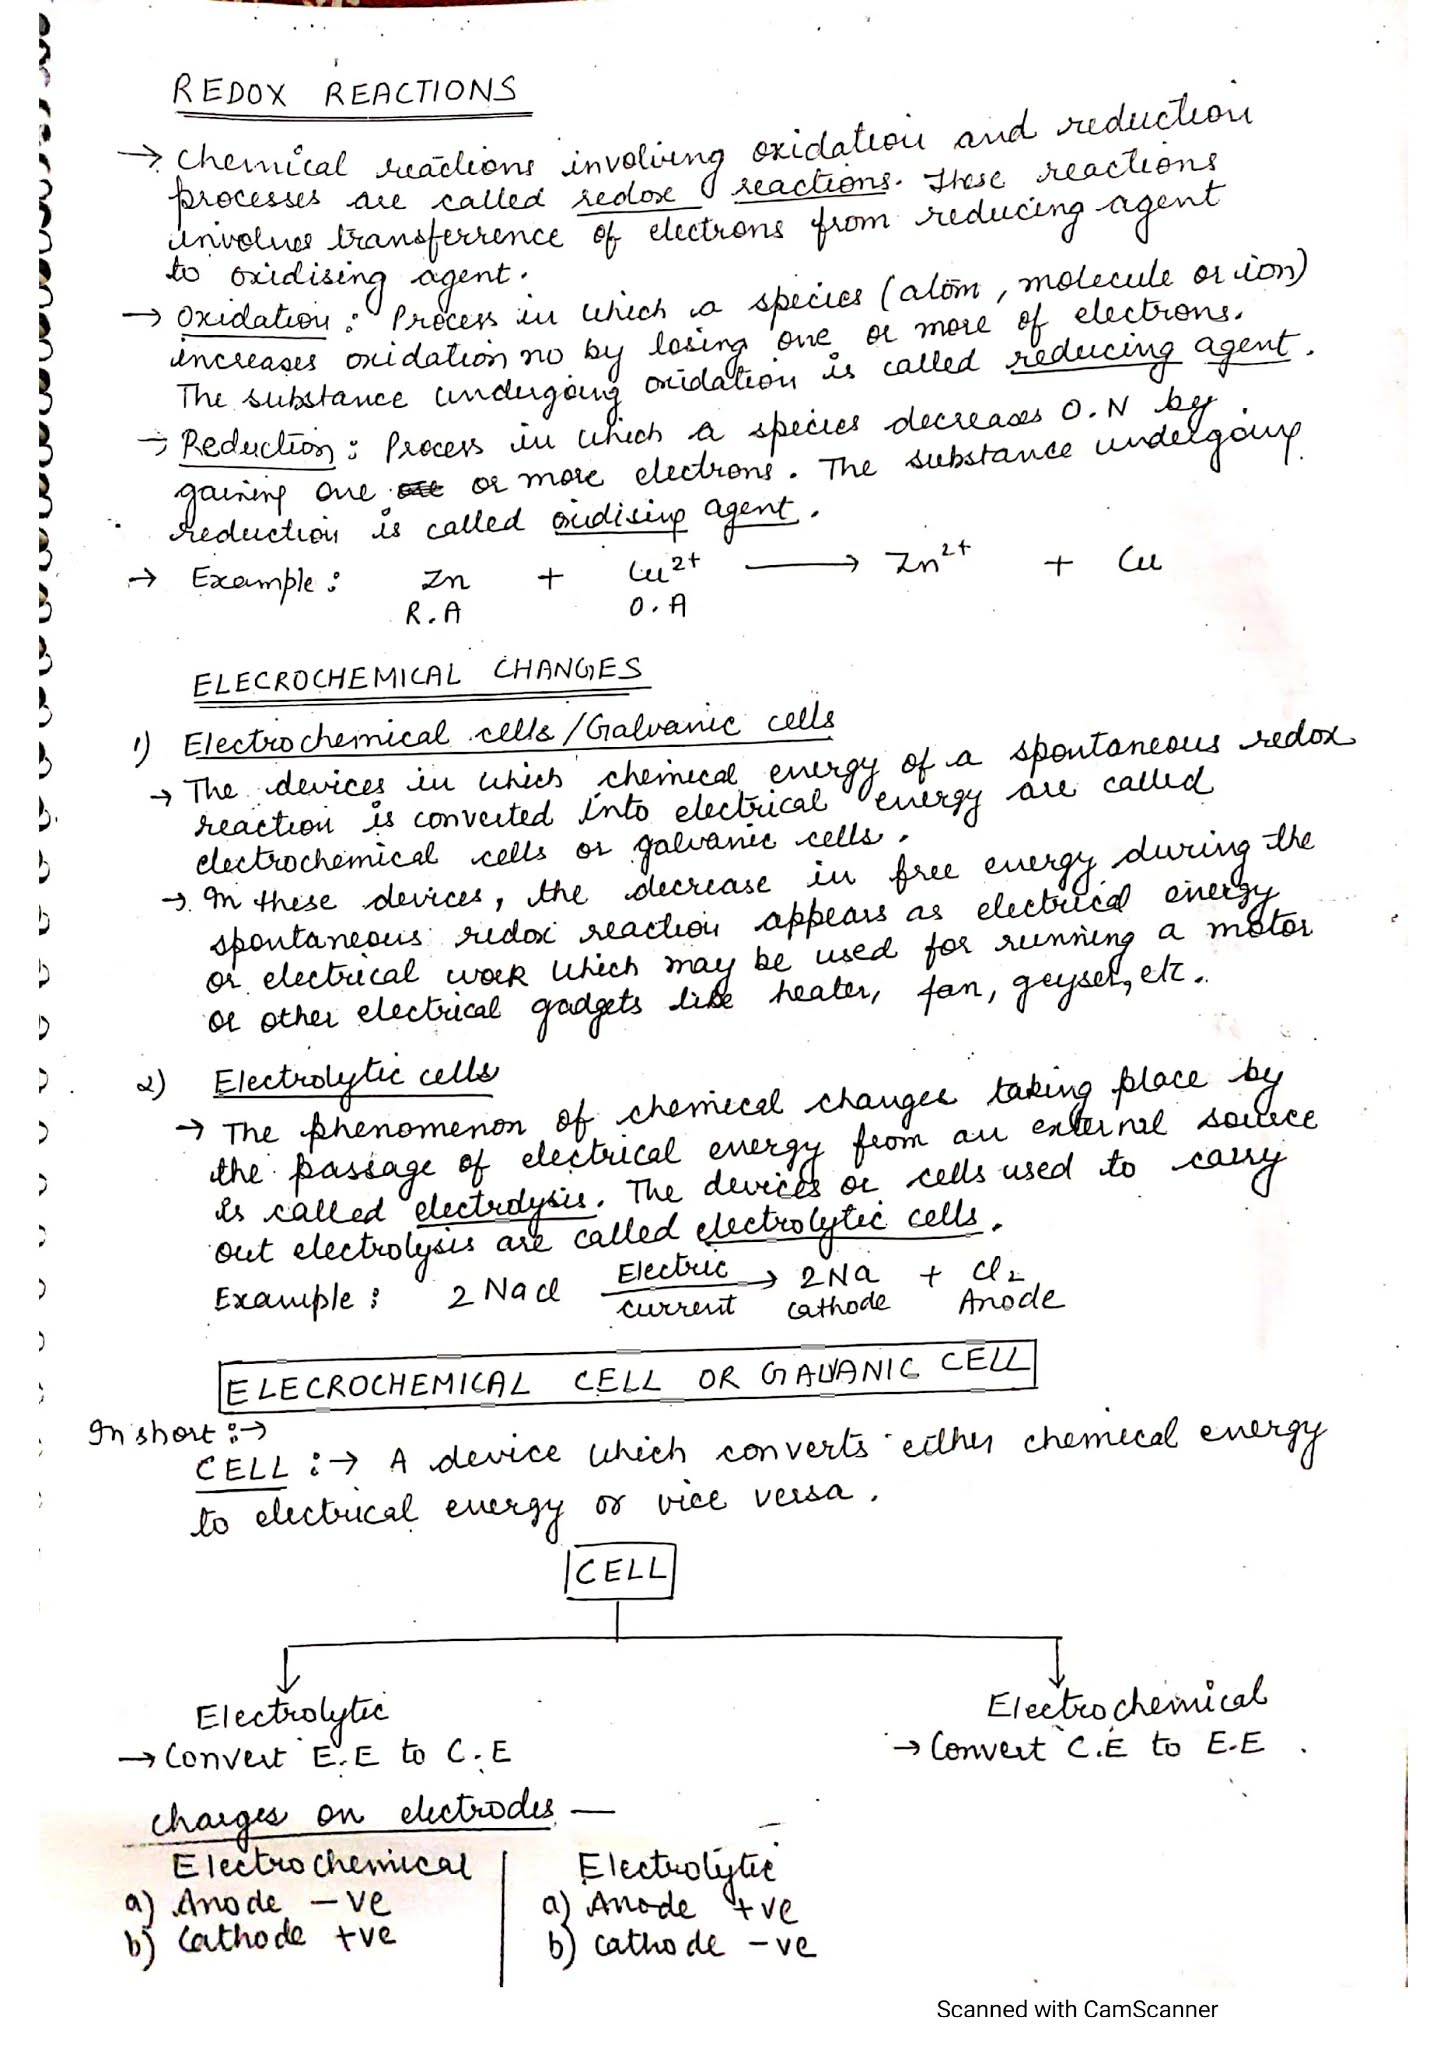 REDOX REACTIONS
→ Chemical reactions involving oxidation and reduction
processes are called redox reactions. These reactions
involves transferrence of electrons from reducing agent
to oxidising agent.
→ Oxidation : Process in which a species (atom, molecule or ion)
increases oxidation no by losing one or more of electrons.
The substance undergoing oxidation is called reducing agent.
→ Reduction : Process in which a species decreases O.N by
gaining one or more electrons. The substance undergoing
reduction is called oxidising agent.
→ Example : Zn + Cu²⁺ ⟶ Zn²⁺ + Cu
R.A O.A
ELECROCHEMICAL CHANGES
1) Electrochemical cells/Galvanic cells
→ The devices in which chemical energy of a spontaneous redox
reaction is converted into electrical energy are called
electrochemical cells or galvanic cells.
→ In these devices, the decrease in free energy during the
spontaneous redox reaction appears as electrical energy
or electrical work which may be used for running a motor
or other electrical gadgets like heater, fan, geyser, etc.
2) Electrolytic cells
→ The phenomenon of chemical changes taking place by
the passage of electrical energy from an external source
is called electrolysis. The devices or cells used to carry
out electrolysis are called electrolytic cells.
Example : 2 NaCl Electric → 2Na + Cl₂
current cathode Anode
ELECROCHEMICAL CELL OR GALVANIC CELL
In short :→
CELL :→ A device which converts either chemical energy
to electrical energy or vice versa.
CELL
Electrolytic Electrochemical
→ Convert E.E to C.E → Convert C.E to E.E .
Charges on electrodes —
Electrochemical Electrolytic
a) Anode -ve a) Anode +ve
b) Cathode +ve b) cathode -ve
Scanned with CamScanner